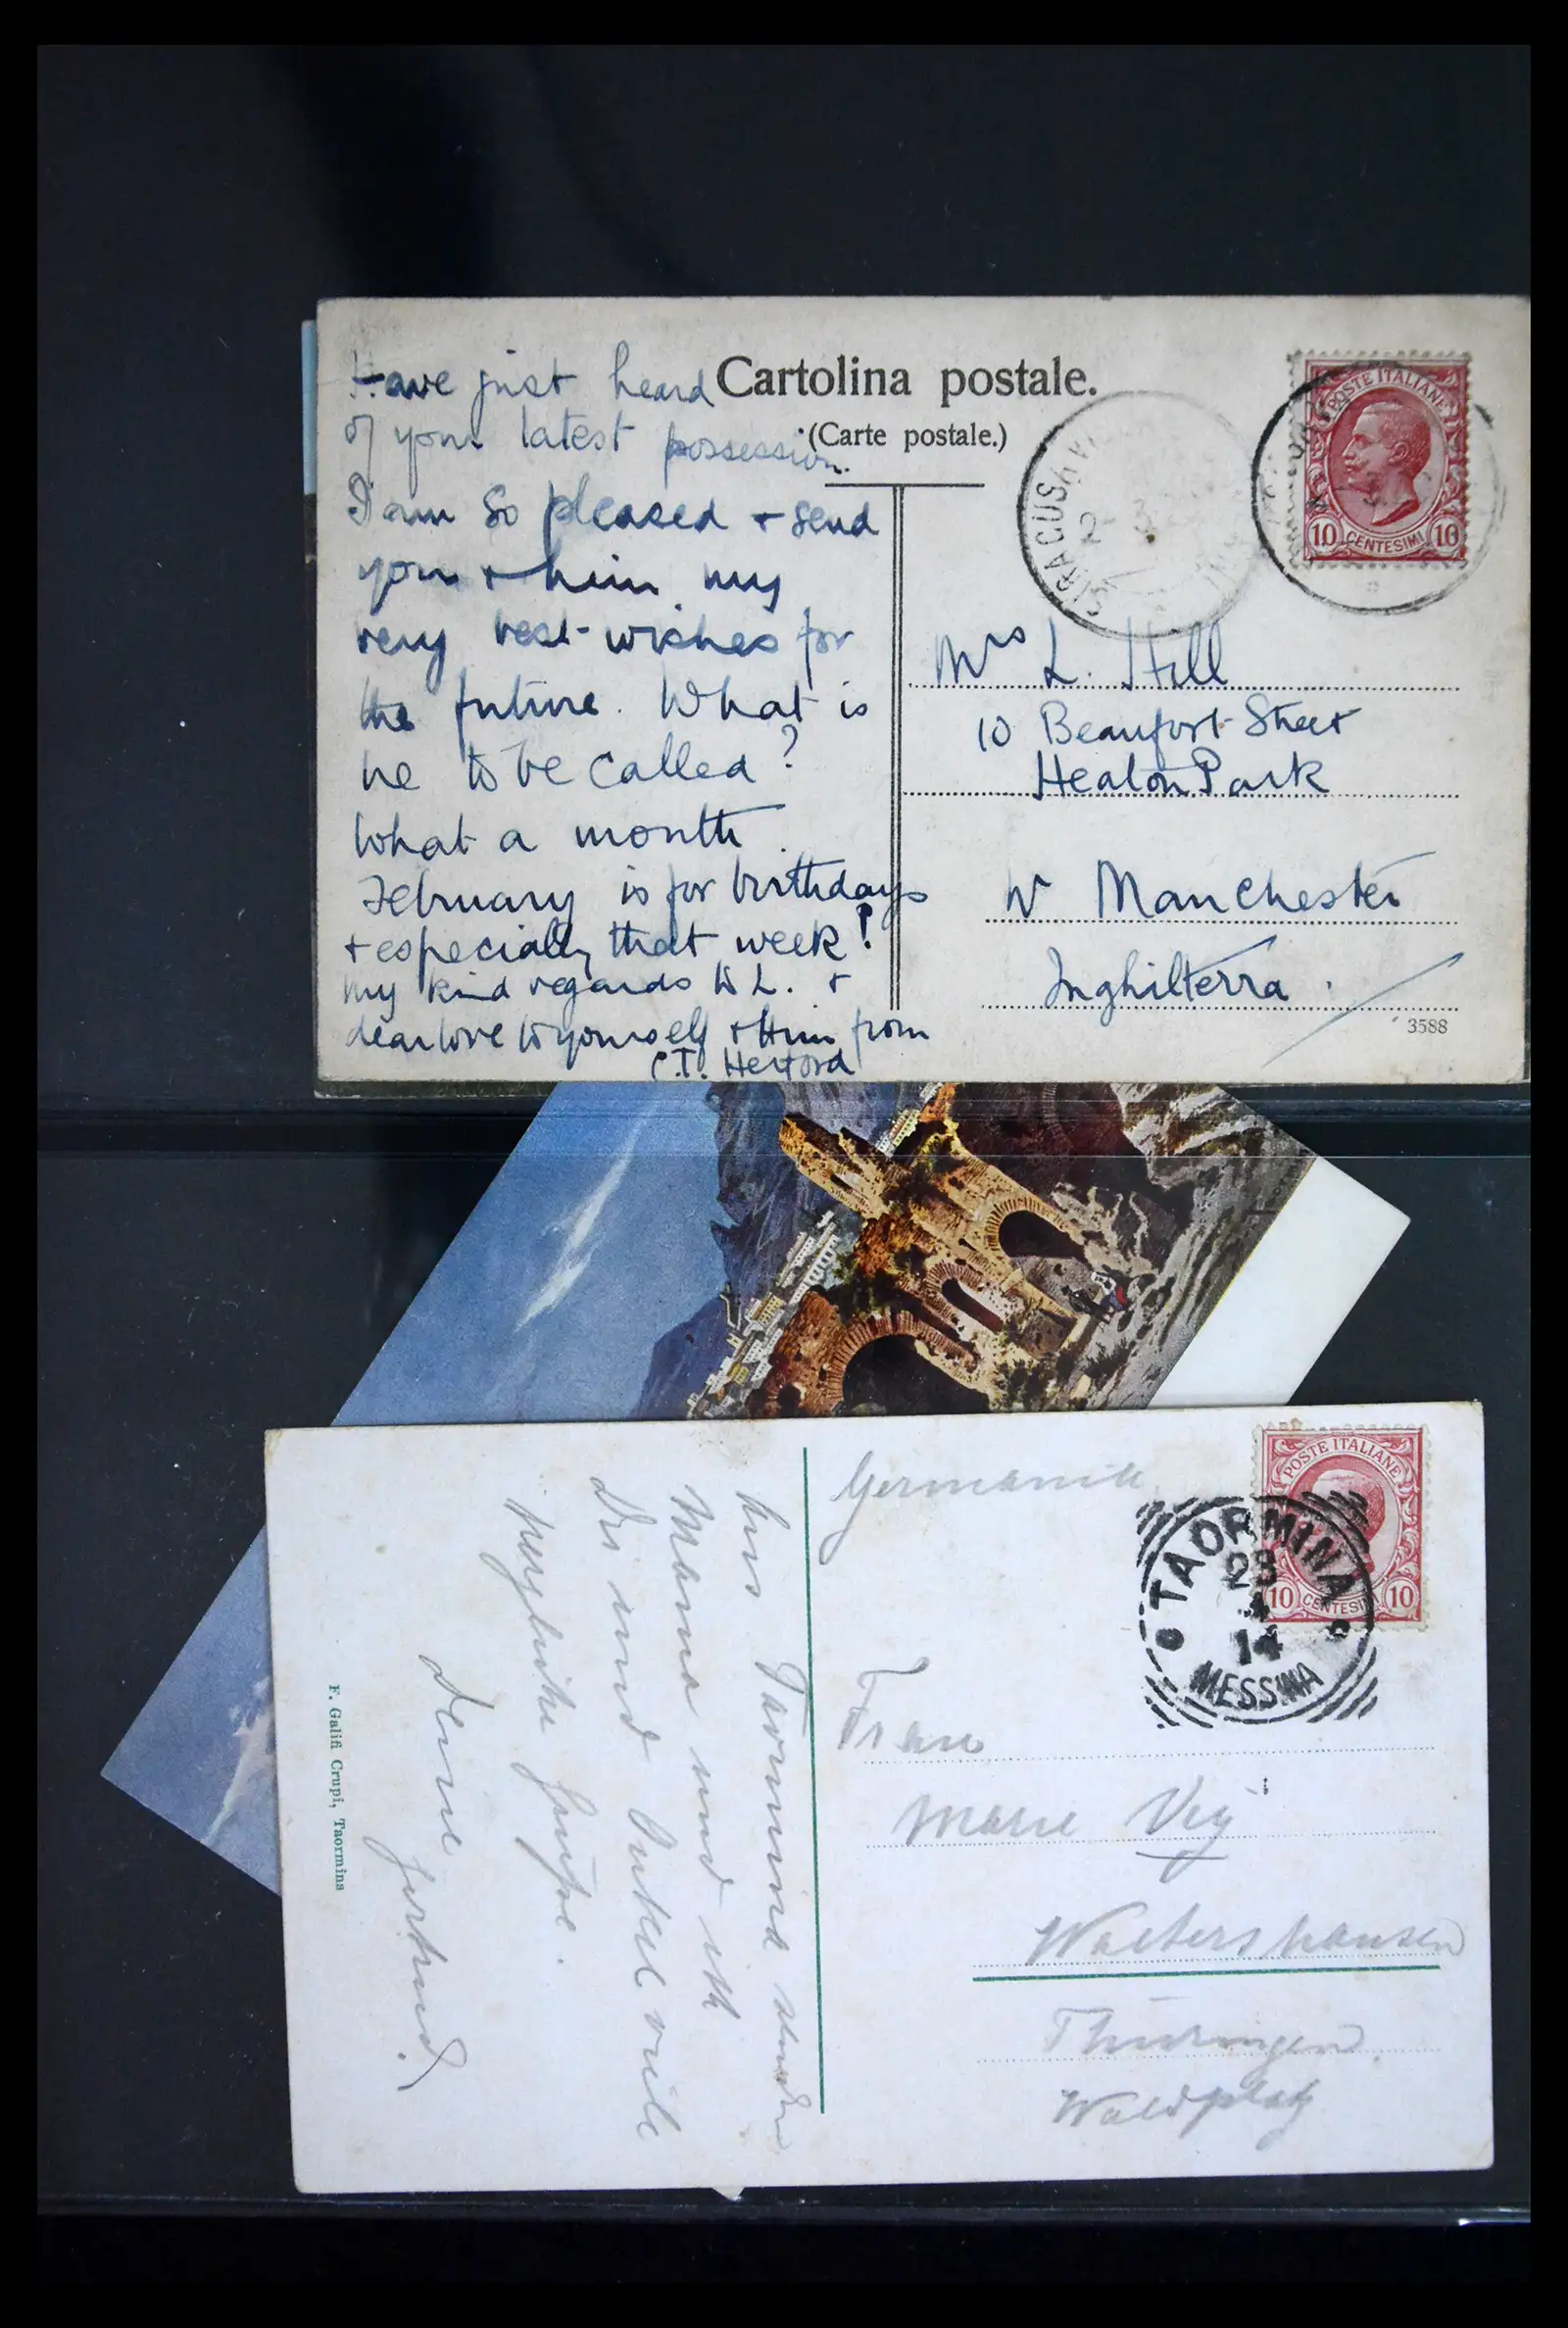 Have just heard
of your latest possession.
I am so pleased + send
you + him my
very best wishes for
the future. What is
he to be called?
What a month
February is for birthdays
+ especially that week!
my kind regards to L. +
dear love to yourself + Him from
C.T. Herford
Cartolina postale.
(Carte postale.)
SIRACUSA
POSTE ITALIANE
10 CENTESIMI 10
Mrs L. Hill
10 Beaufort Street
Heaton Park
Nr Manchester
Inghilterra.
3588
Taormina senden
Mama und ich
Dir und Onkel viele
herzliche Grüsse.
Deine Gertrud.
F. Galifi Crupi, Taormina
POSTE ITALIANE
10 CENTESIMI 10
TAORMINA
23
4
14
MESSINA
Frau
Marie
Waltershausen
Thüringen.
Waldplatz